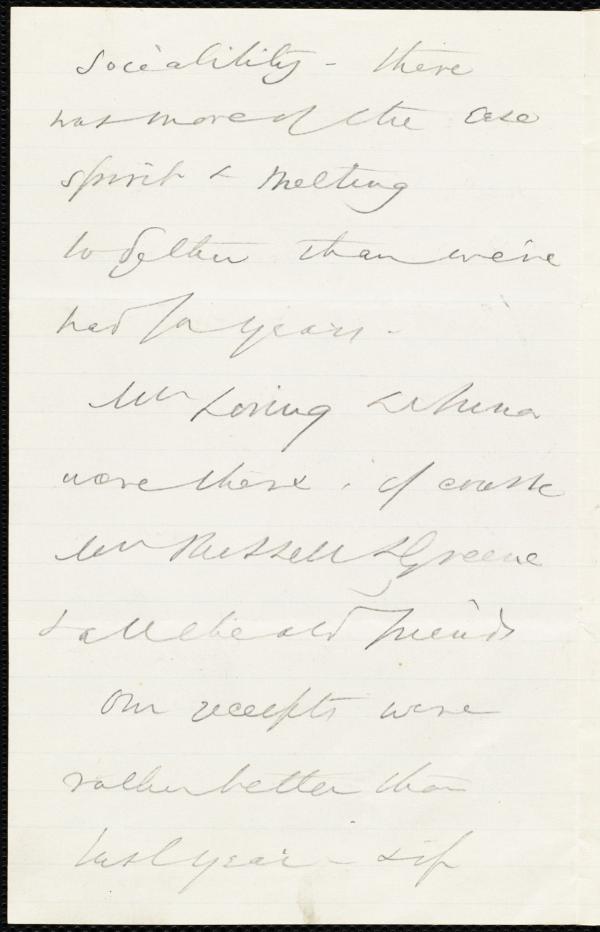 Sociability - there
was more of the ease
spirit & melting
together than we've
had for years -
Mr Loring & Anna
were there, of course
Mrs Russell & Greene
& all the old friends
Our receipts were
rather better than
last year - & if